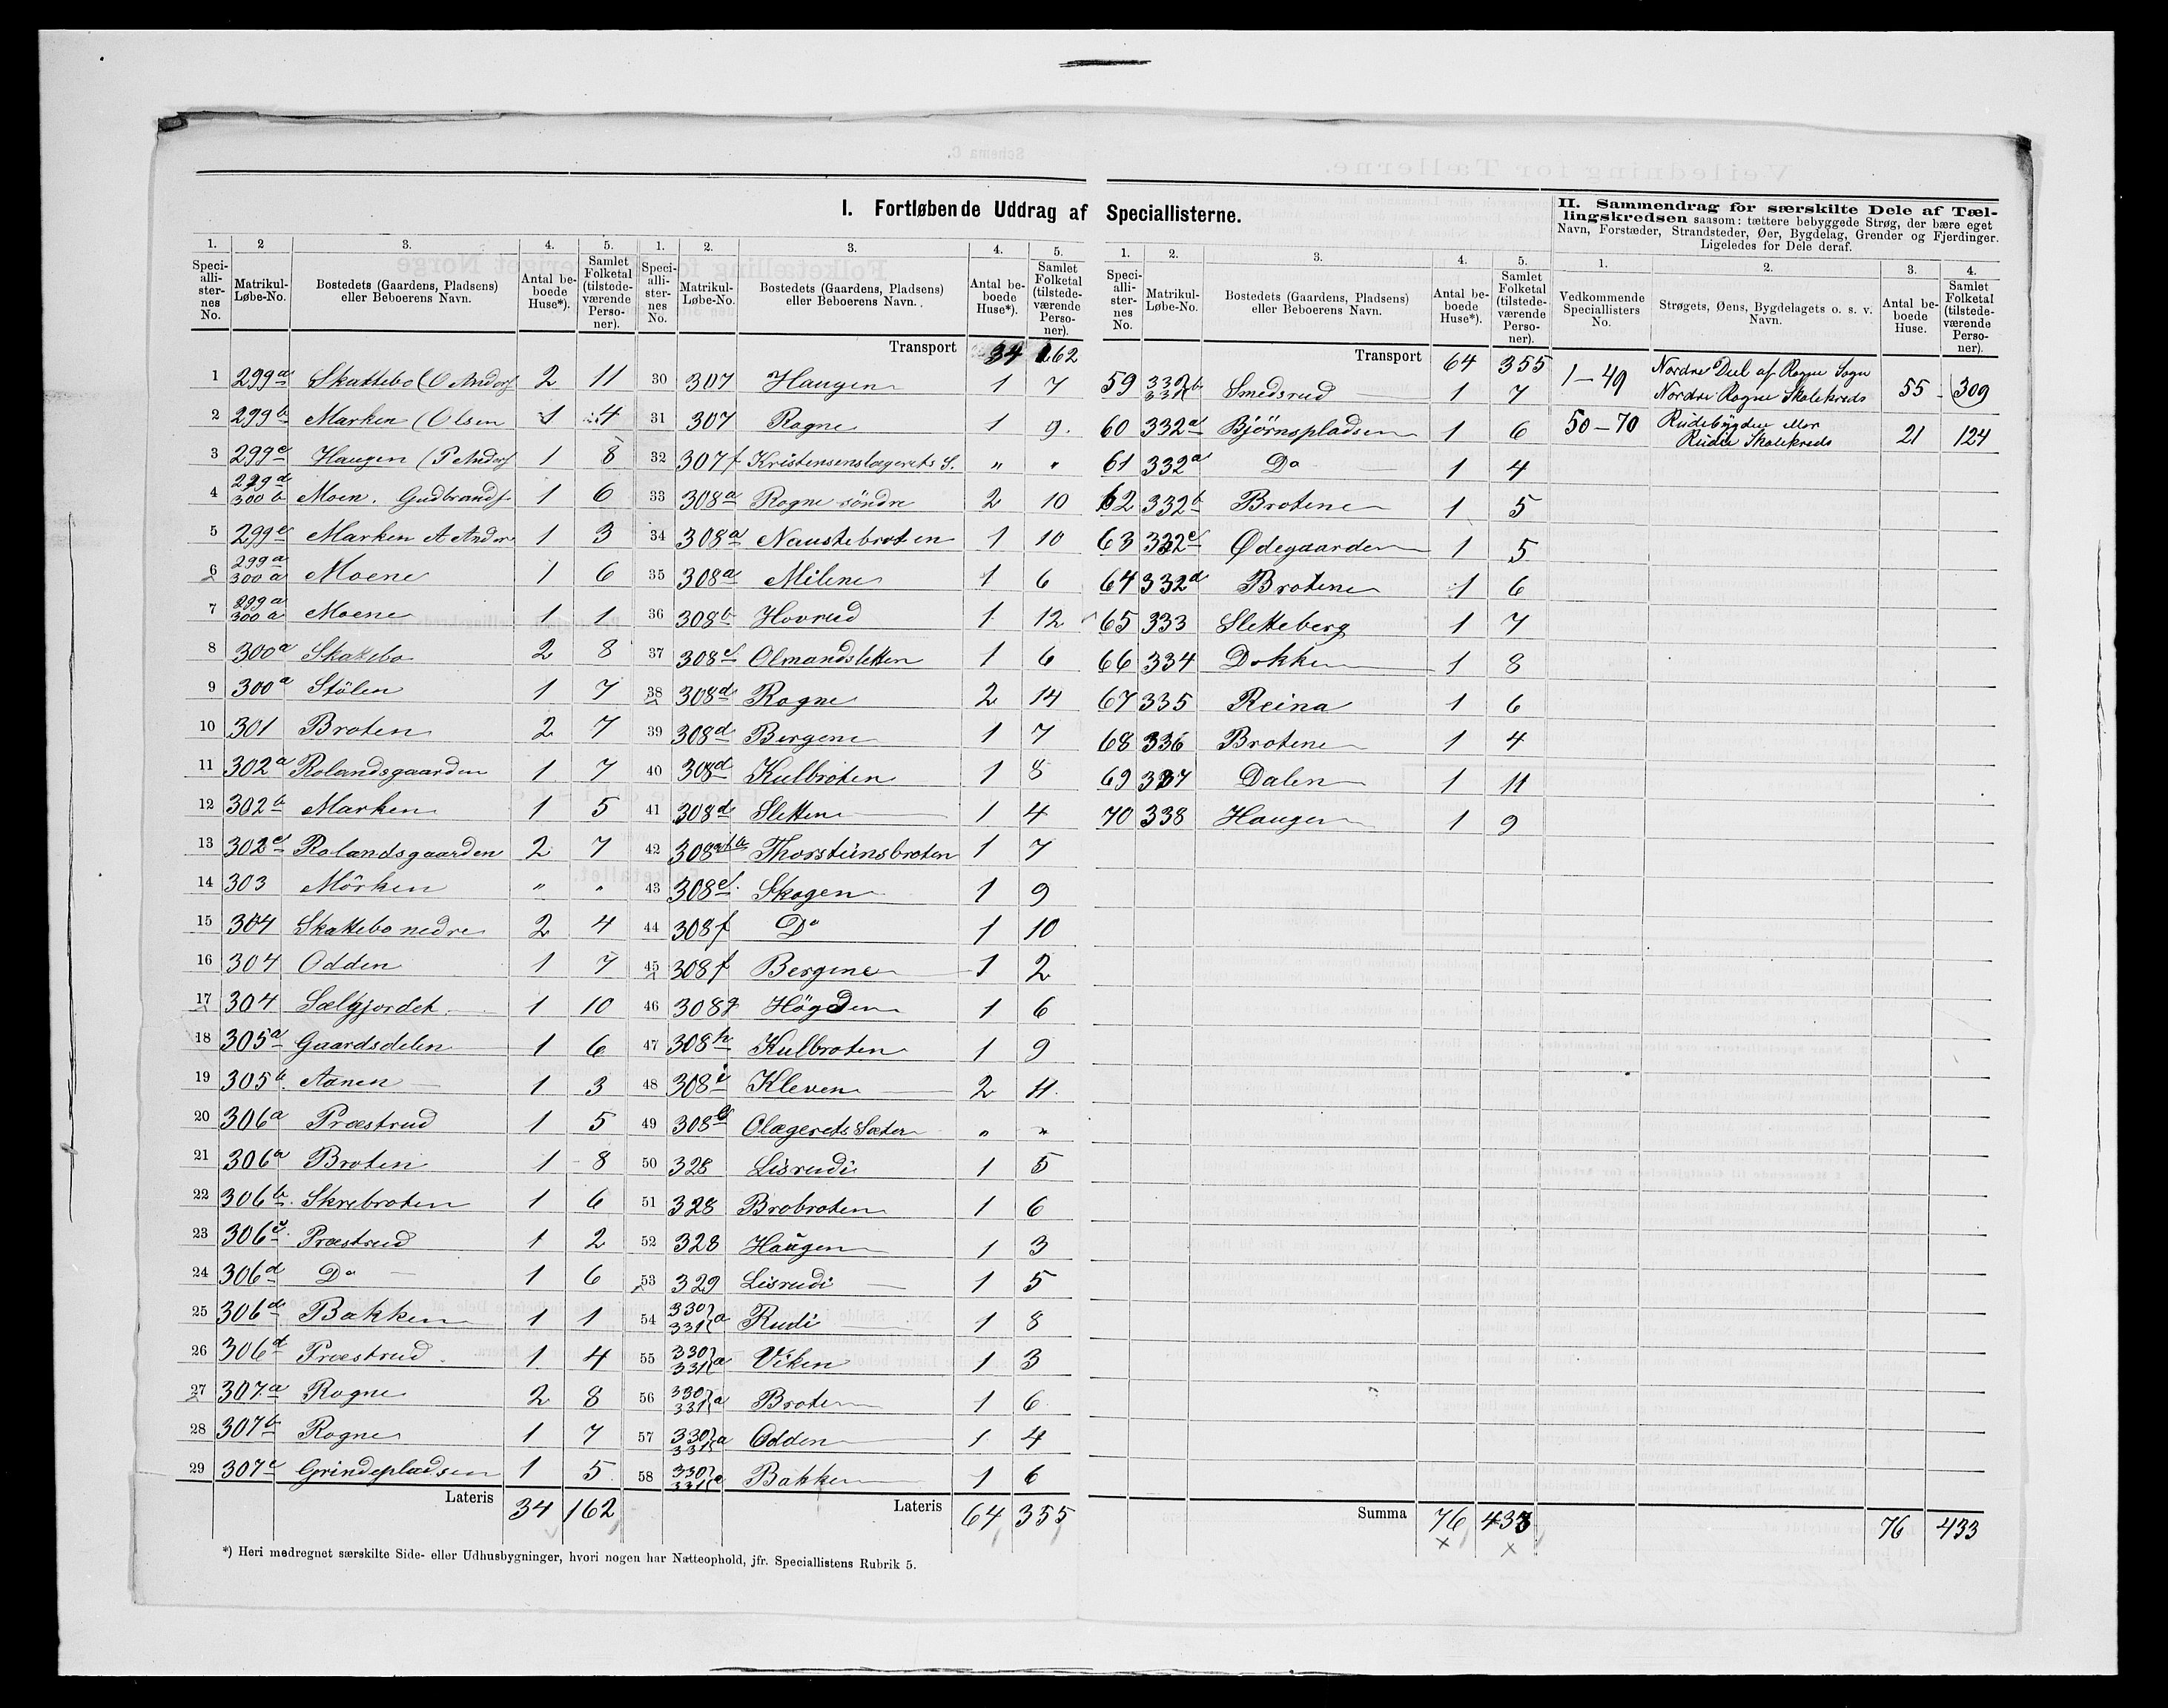 I. Fortløbende Uddrag af Speciallisterne.
1. 2 3. 4. 5.
Speciallisternes No. Matrikul-Løbe-No. Bostedets (Gaardens, Pladsens) eller Beboerens Navn. Antal beboede Huse*). Samlet Folketal (tilstedeværende Personer).
1 299a Skattebo (O Anders 2 11
2 299b Marken (Olsen 1 4
3 299c Haugen (P Anders 1 8
4 299d 300b Moen. Gudbrands 1 6
5 299e Marken A Anders 1 3
6 299a 300a Moene 1 6
7 299a 300a Moene 1 1
8 300a Skatebo 2 8
9 300a Stölen 1 7
10 301 Broten 2 7
11 302a Rolandsgaarden 1 7
12 302b Marken 1 5
13 302c Rolandsgaarden 2 7
14 303 Mörken " "
15 304 Skattebo nedre 2 4
16 304 Odden 1 7
17 304 Sælgjordet 1 10
18 305a Gaardsdelen 1 6
19 305b Aanen 1 3
20 306a Præstrud 1 5
21 306a Broten 1 8
22 306b Skrebroten 1 6
23 306c Præstrud 1 2
24 306d Do 1 6
25 306d Bakken 1 1
26 306d Præstrud 1 4
27 307a Rogne 2 8
28 307b Rogne 1 7
29 307c Grindepladsen 1 5
Lateris 34 162
1. 2. 3. 4. 5.
Speciallisternes No. Matrikul-Løbe-No. Bostedets (Gaardens, Pladsens) eller Beboerens Navn. Antal beboede Huse*). Samlet Folketal (tilstedeværende Personer).
Transport 34 162
30 307 Haugen 1 7
31 307 Rogne 1 9.
32 307f Kristensenslægerets S. " "
33 308a Rogne söndre 2 10
34 308a Naustebroten 1 10
35 308a Milene 1 6
36 308b Hovrud 1 12
37 308c Olmandsletten 1 6
38 308d Rogne 2 14
39 308d Bergene 1 7
40 308d Kulbroten 1 8
41 308d Sletten 1 4
42 308 Thorsteinsbroten 1 7
43 308e Skogen 1 9
44 308f Do 1 10
45 308f Bergene 1 2
46 308g Högden 1 6
47 308h Kulbroten 1 9
48 308i Kleven 2 11.
49 308 Olægerets Sæter " "
50 328 Lisrudi 1 5
51 328 Brobroten 1 6
52 328 Haugen 1 3
53 329 Lisrudi 1 5
54 330 331 a Rudi 1 8
55 330 331 a Viken 1 3
56 330 331 a Broten 1 6
57 330 331 a Odden 1 4
58 330 331 a Bakken 1 6
Lateris 64 355
1. 2. 3. 4. 5.
Speciallisternes No. Matrikul-Løbe-No. Bostedets (Gaardens, Pladsens) eller Beboerens Navn. Antal beboede Huse*). Samlet Folketal (tilstedeværende Personer).
Transport 64 355
59 330 331 b Smedsrud 1 7
60 332a Björnspladsen 1 6
61 332a Do 1 4
62 332b Brotene 1 5
63 332c Ødegaarden 1 5
64 332d Brotene 1 6
65 333 Sletteberg 1 7
66 334 Dokken 1 8
67 335 Reina 1 6
68 336 Brotene 1 4
69 337 Dalen 1 11
70 338 Haugen 1 9
Summa 76 433
II. Sammendrag for særskilte Dele af Tællingskredsen saasom: tættere bebyggede Strøg, der bære eget Navn, Forstæder, Strandsteder, Øer, Bygdelag, Grender og Fjerdinger. Ligeledes for Dele deraf.
1. 2. 3. 4.
Vedkommende Speciallisters No. Strøgets, Øens, Bygdelagets o. s. v. Navn. Antal beboede Huse. Samlet Folketal (tilstedeværende Personer).
1-49 Nordre Deel af Rogne Sogn
Nordre Rogne Skolekreds 55 309
50-70 Rudebygden
Rudie Skolekreds 21 124
76 433
*) Heri medregnet særskilte Side- eller Udhusbygninger, hvori nogen har Natteophold, jfr. Speciallistens Rubrik 5.